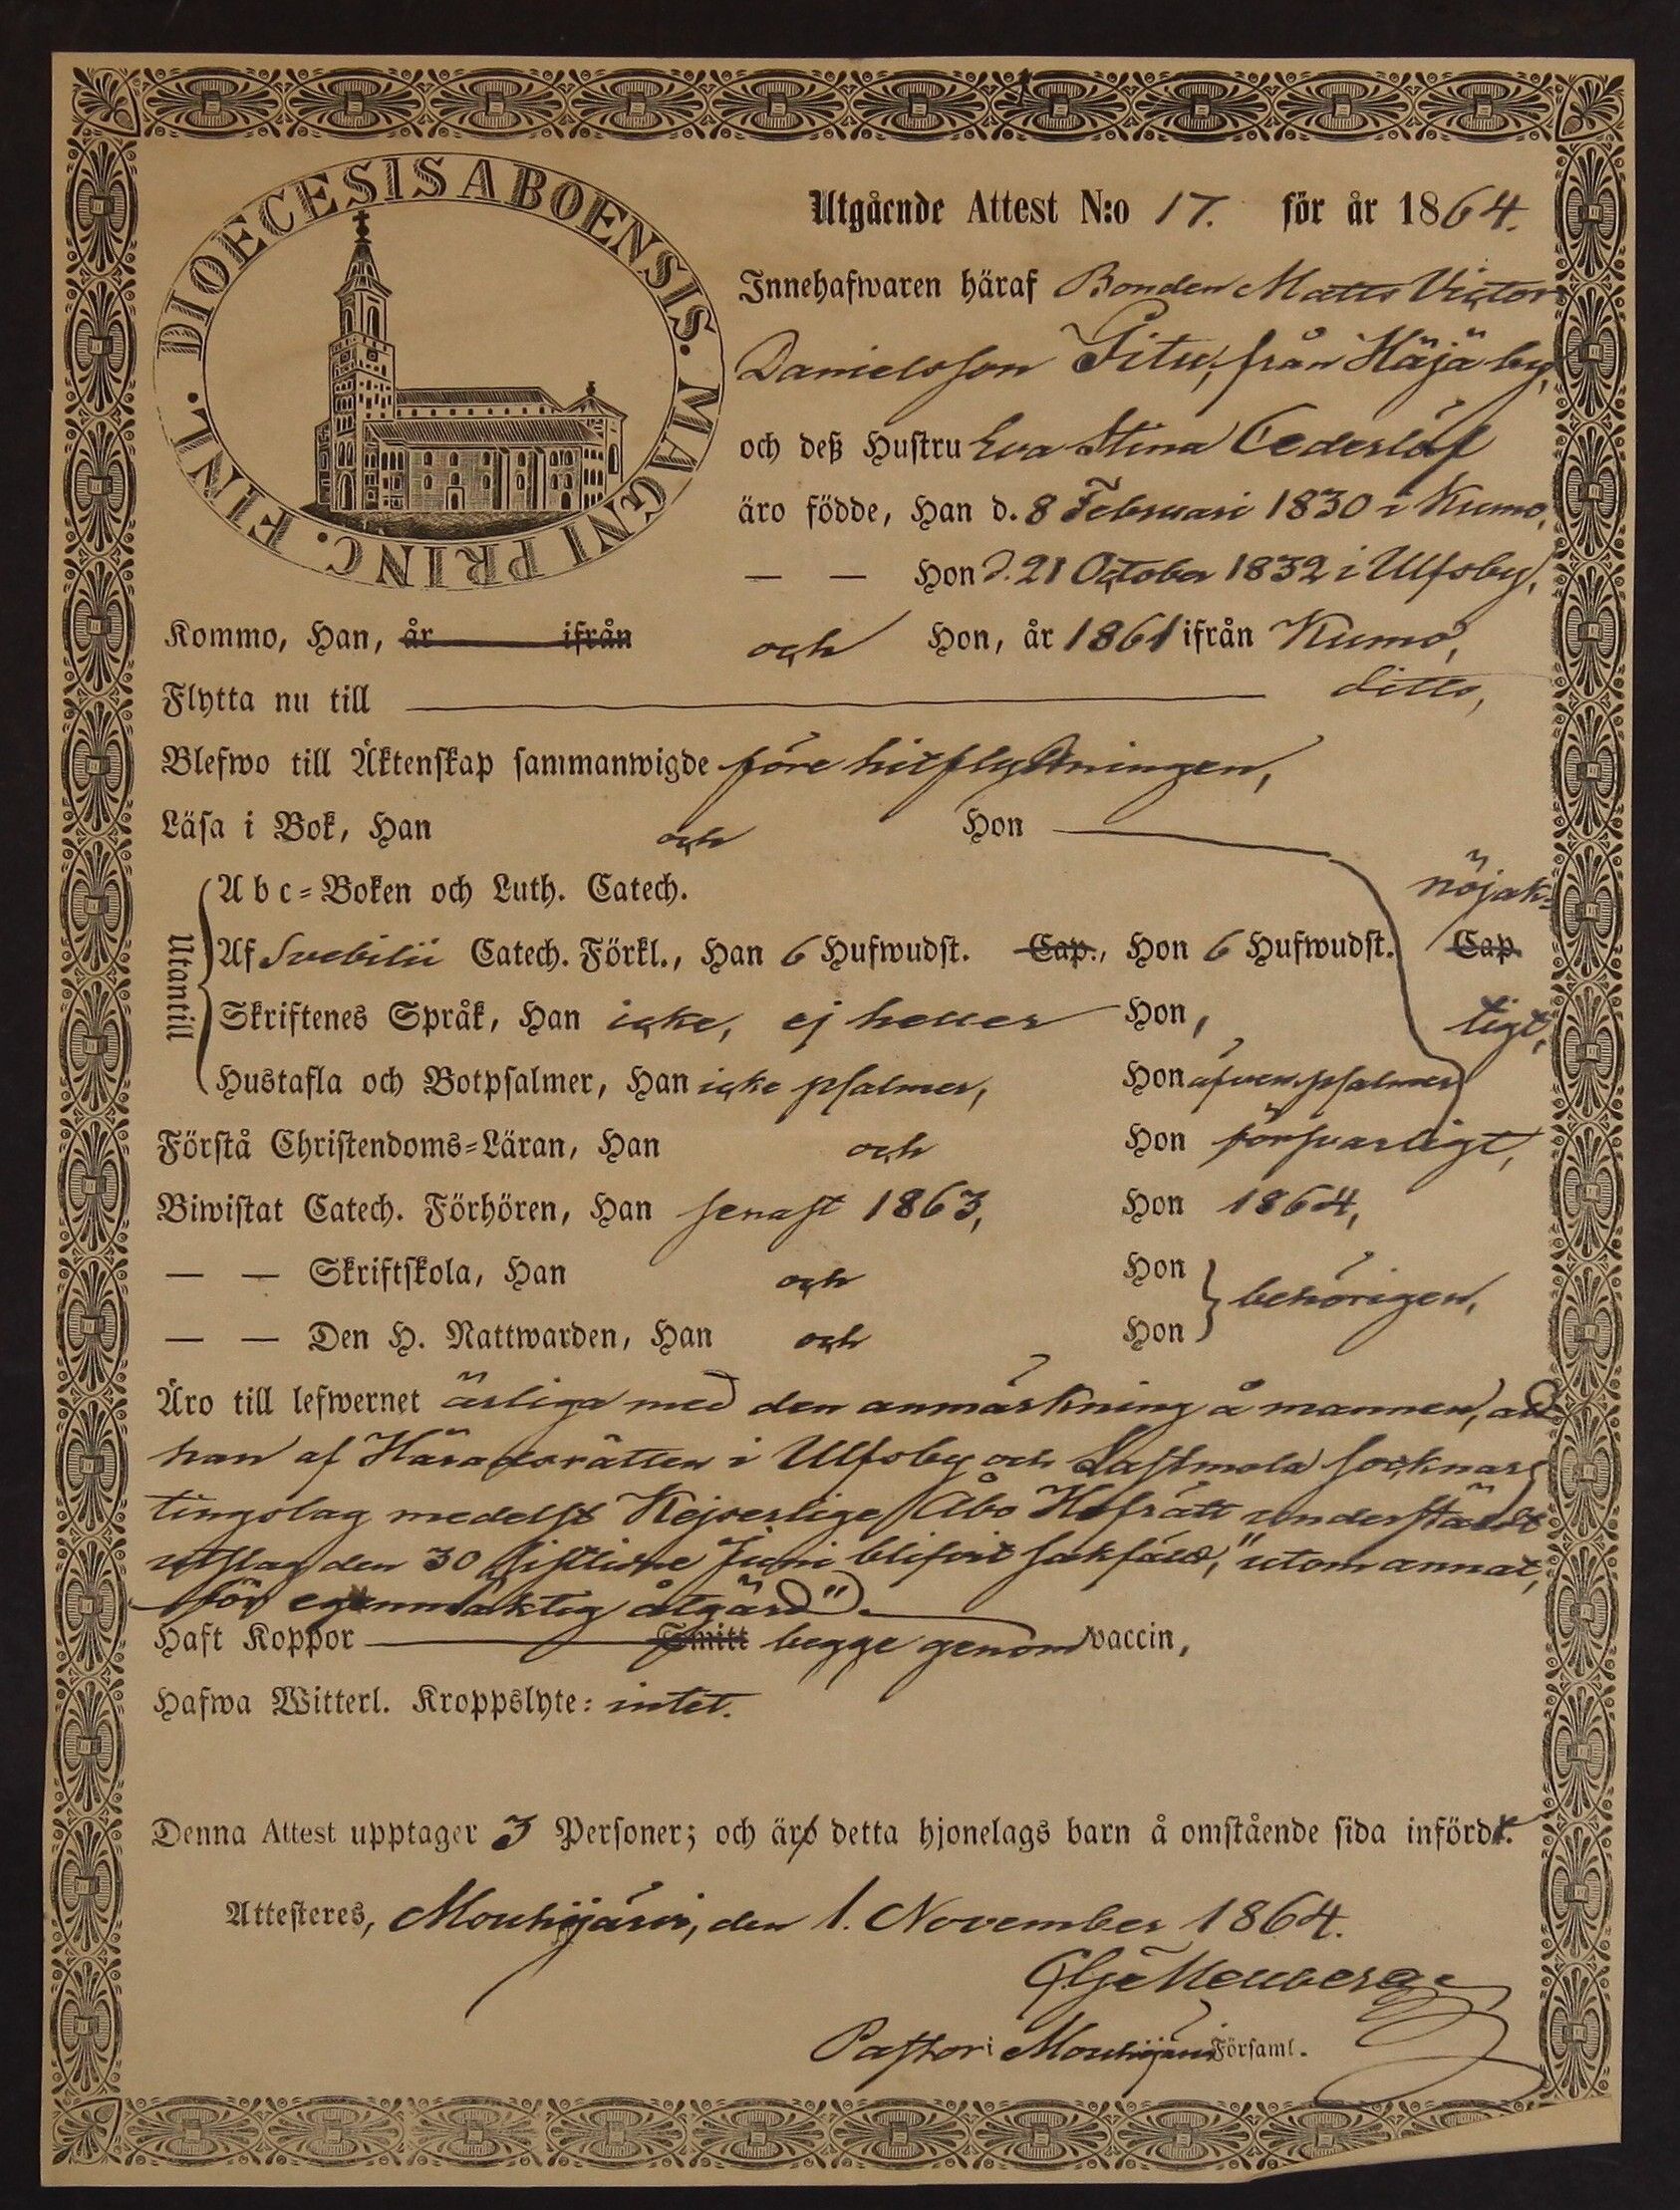 DIOECESIS ABOENSIS. MAGNI PRINC. FINL.
Utgående Attest N:o 17. för år 1864.
Innehafwaren häraf Bonden Matts Victor
Danielsson Pitu, från Häjä by,
och deß Hustru Eva Stina Cederlöf
äro födde, Han d. 8 Februari 1830 i Kumo,
— — Hon d. 21 October 1832 i Ulfsby,
Kommo, Han, år ifrån och Hon, år 1861 ifrån Kumo,
Flytta nu till ditto,
Blefwo till Äktenskap sammanwigde före hitflyttningen,
Läsa i Bok, Han och Hon
Utantill
A b c=Boken och Luth. Catech. nöjak=
Af Svebilii Catech. Förkl., Han 6 Hufwudst. Cap., Hon 6 Hufwudst. Cap.
Skriftenes Språk, Han icke, ej heller Hon, tigt,
Hustafla och Botpsalmer, Han icke psalmer, Hon äfven psalmer
Förstå Christendoms=Läran, Han och Hon försvarligt,
Biwistat Catech. Förhören, Han senast 1863, Hon 1864,
— — Skriftskola, Han och Hon
behörigen,
— — Den H. Nattwarden, Han och Hon
Äro till lefwernet ärliga med den anmärkning å mannen, att
han af Häradsrätten i Ulfsby och Sastmola socknars
tingslag medelst Kejserlige Åbo Hofrätt underställdt
utslag den 30 sistlidne Juni blifvit sakfäld, "utom annat,
för egenmäktig åtgärd".
Haft Koppor Smitt begge genom vaccin,
Hafwa Witterl. Kroppslyte: intet.
Denna Attest upptager 3 Personer; och äro detta hjonelags barn å omstående sida infördt.
Attesteres, Mouhijärvi, den 1. November 1864.
Pastor i Mouhijärvi Församl.